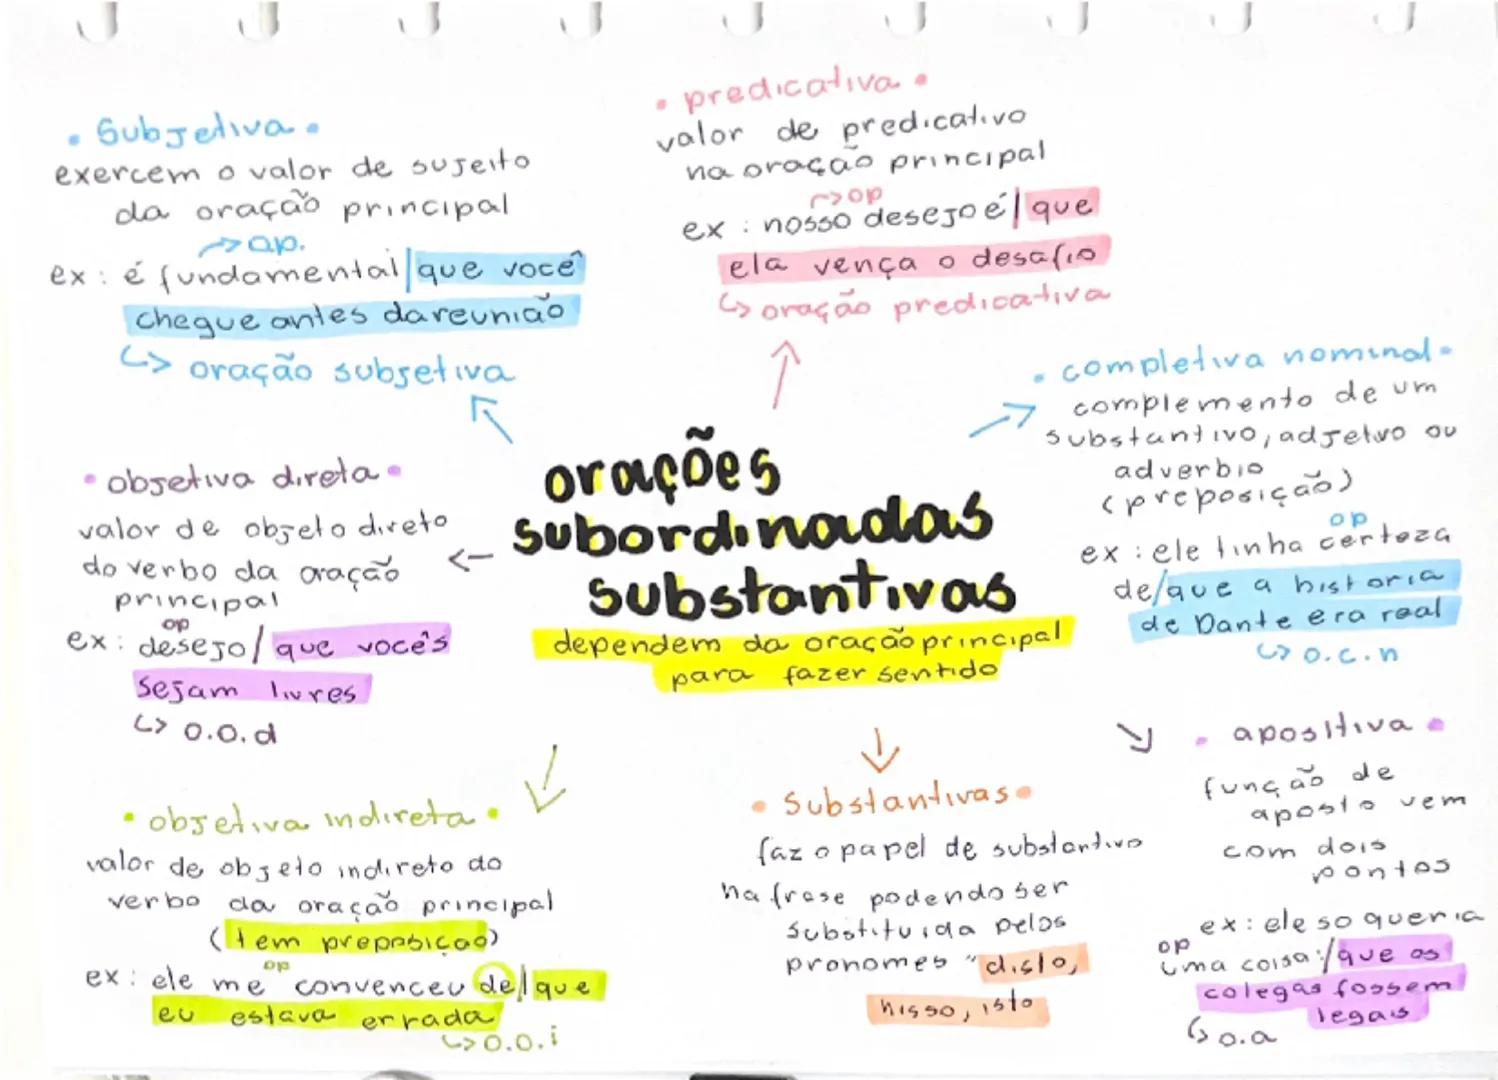 • Subjetiva •
exercem o valor de sujeito
da oração principal
→ op.
ex: é fundamental/que você
chegue antes da reunião
↳ oração subjetiva
• predicativa •
valor de predicativo
na oração principal
→ op
ex: nosso desejo é/que
ela vença o desafio
↳ oração predicativa
• completiva nominal •
complemento de um
substantivo, adjetivo ou
adverbio
(preposição)
op
ex: ele tinha certeza
de/que a historia
de Dante era real
↳ o.c.n
• objetiva direta •
valor de objeto direto
do verbo da oração
principal
op
ex: desejo/que vocês
sejam livres
↳ o.o.d
orações
subordinadas
substantivas
dependem da oração principal
para fazer sentido
• objetiva indireta •
valor de objeto indireto do
verbo da oração principal
(tem preposição)
op
ex: ele me convenceu de/que
eu estava errada
↳ o.o.i
• Substantivas •
faz o papel de substantivo
na frase podendo ser
substituida pelos
pronomes "disto,
nisso, isto
• apositiva •
função de
aposto vem
com dois
pontos
ex: ele so queria
op
uma coisa:/que os
colegas fossem
legais
↳ o.a